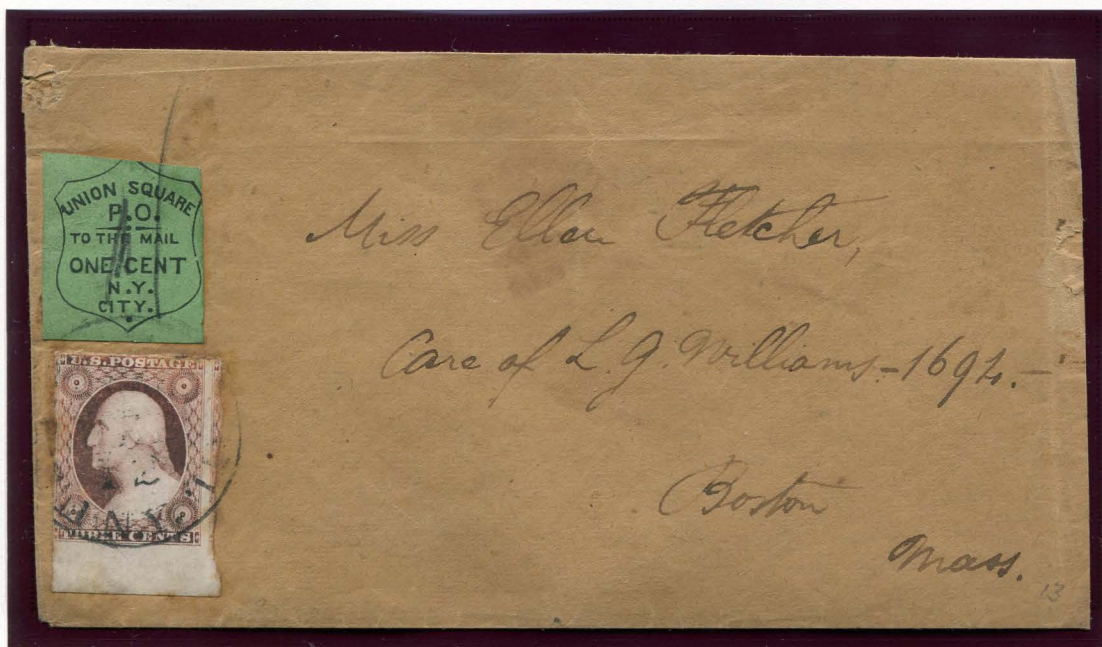 UNION SQUARE
P.O.
TO THE MAIL
ONE CENT
N.Y.
CITY.
U.S. POSTAGE
THREE CENTS
N.Y.
Miss Ellen Fletcher,
Care of L. G. Williams - 1694. -
Boston
Mass.
13